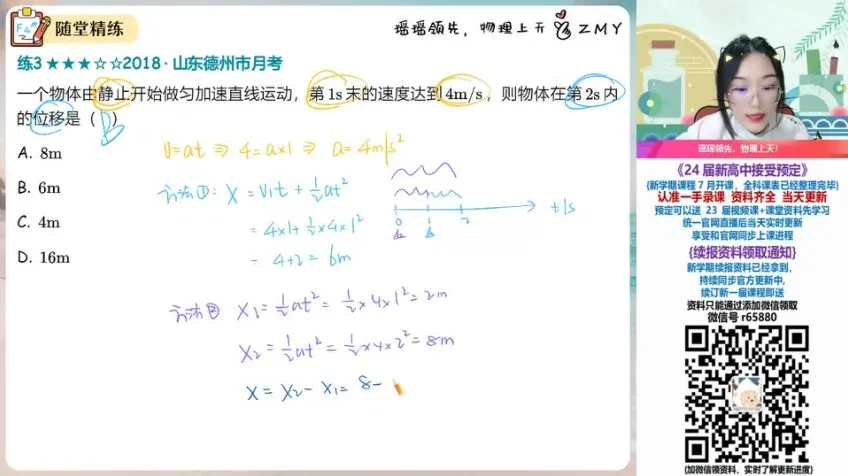 随堂精练
瑶瑶领先，物理上天 ZMY
练3 ★★★☆☆2018·山东德州市月考
一个物体由静止开始做匀加速直线运动，第1s末的速度达到4m/s，则物体在第2s内
的位移是（B）
A. 8m
B. 6m
C. 4m
D. 16m
v=at ⇒ 4=a×1 ⇒ a=4m/s²
方法①: x=v₁t+½at²
=4×1+½×4×1²
=4+2=6m
0 1 2 t/s
方法② x₁=½at²=½×4×1²=2m
x₂=½at²=½×4×2²=8m
x=x₂-x₁=8-
瑶瑶领先，物理上天！
《24 届新高中接受预定》
{新学期课程 7 月开课，全科课表已经整理完毕}
认准一手录课 资料齐全 当天更新
预定可以送 23 届视频课+课堂资料先学习
统一官网直播后当天实时更新
享受和官网同步上课进程
{续报资料领取通知}
新学期续报资料已经到拿，
持续同步官方更新中，
续订新一届课程即送
资料只能通过添加微信领取
微信号 r65880
{加微信领资料，实时了解更新进度}